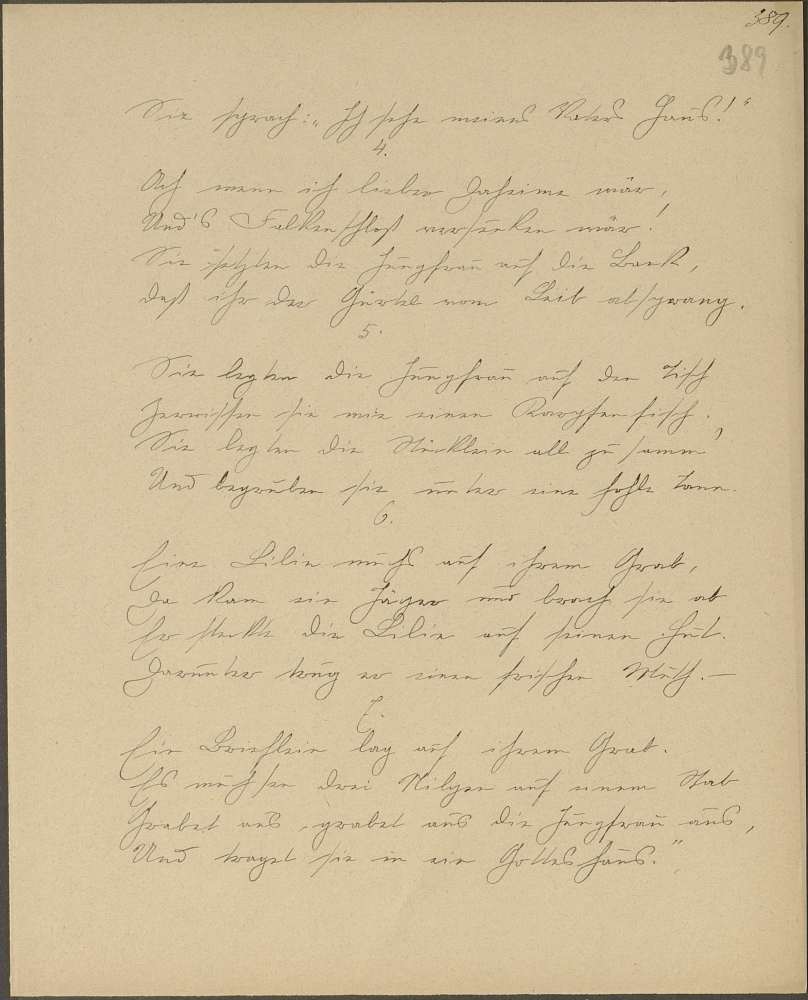 389.
389
Sie sprach: „Ich sehe meines Vaters Haus!“
4.
Ach wenn ich lieber daheime wär,
Und's Falkenschloß versunken wär!
Sie setzten die Jungfrau auf die Bank,
daß ihr der Gürtel vom Leib absprang.
5.
Sie legten die Jungfrau auf den Tisch
Zerrissen sie wie einen Karpfenfisch.
Sie legten die Stücklein all zu samm'
Und begruben sie unter eine hohle Tann.
6.
Eine Lilie wuchs auf ihrem Grab,
Da kam ein Jäger und brach sie ab
Er steckte die Lilie auf seinen Hut.
Darunter trug er einen frischen Muth.—
7.
Ein Brieflein lag auf ihrem Grab.
Es wuchsen drei Nilgen auf einem Stab
Grabet aus, grabet aus die Jungfrau aus,
Und traget sie in ein Gotteshaus.“